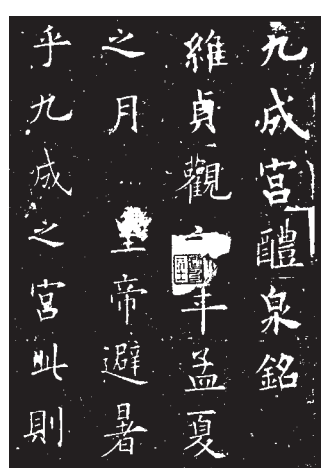 九成宮醴泉銘
維貞觀六年孟夏
之月皇帝避暑
乎九成之宮此則